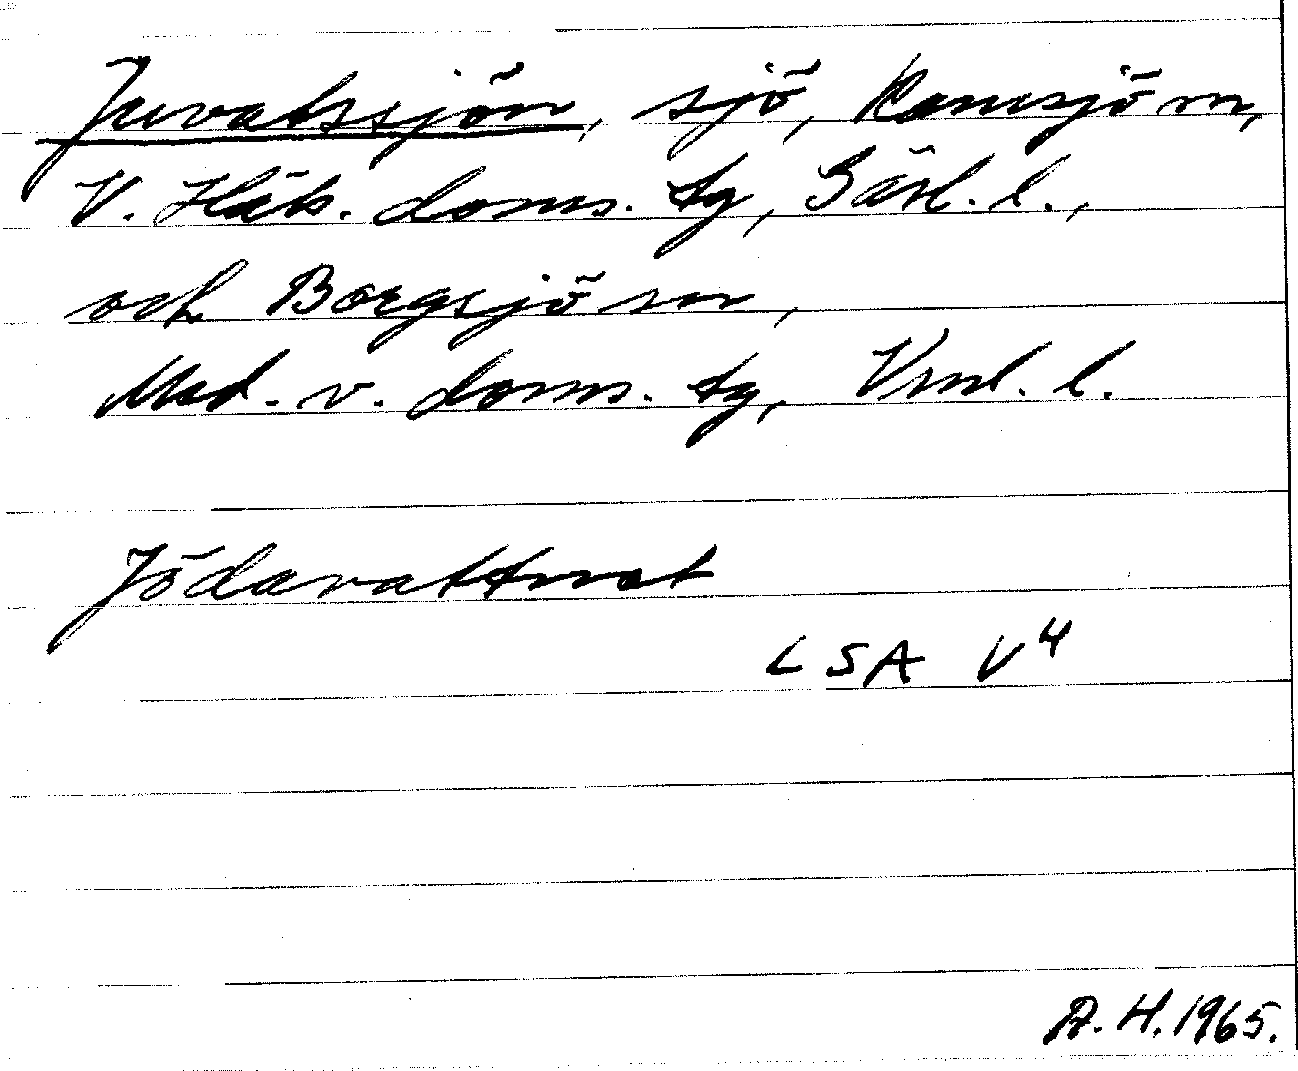 Juvatssjön, sjö, Ramsjö sn,
V. Häls. doms. tg, Gävl. l.,
och Borgsjö sn,
Med. v. doms. tg, Vrnl. l.
Jödavattnat
LSA V4
A. H. 1965.